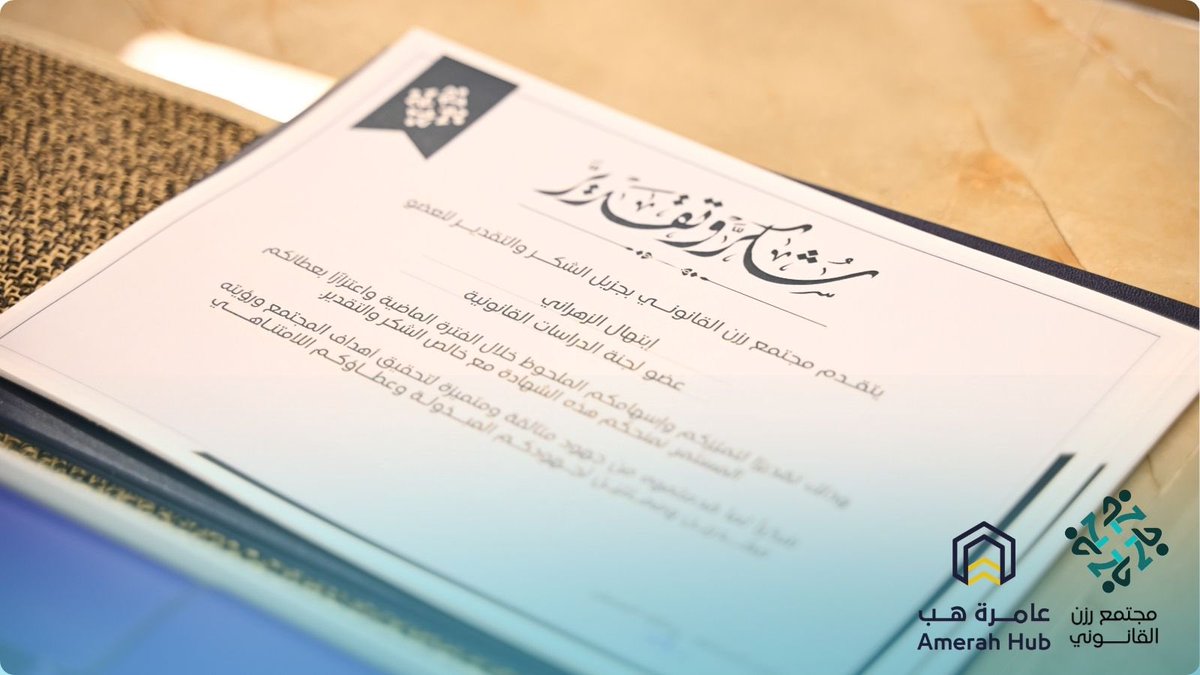 شكر وتقدير
يتقدم مجتمع رزن القانوني بجزيل الشكر والتقدير للعضو
ابتهال الزهراني
عضو لجنة الدراسات القانونية
وإسهامكم الملحوظ خلال الفترة الماضية واعتزازًا بعطائكم
المستمر نمنحكم هذه الشهادة مع خالص الشكر والتقدير
من جهود متألقة ومتميزة لتحقيق أهداف المجتمع ورؤيته
المبذولة وعطاؤكم اللامتناهي
عامرة هب
Amerah Hub
مجتمع رزن
القانوني